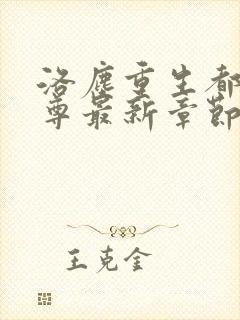 洛塵重生都
尊最新章節
王克金